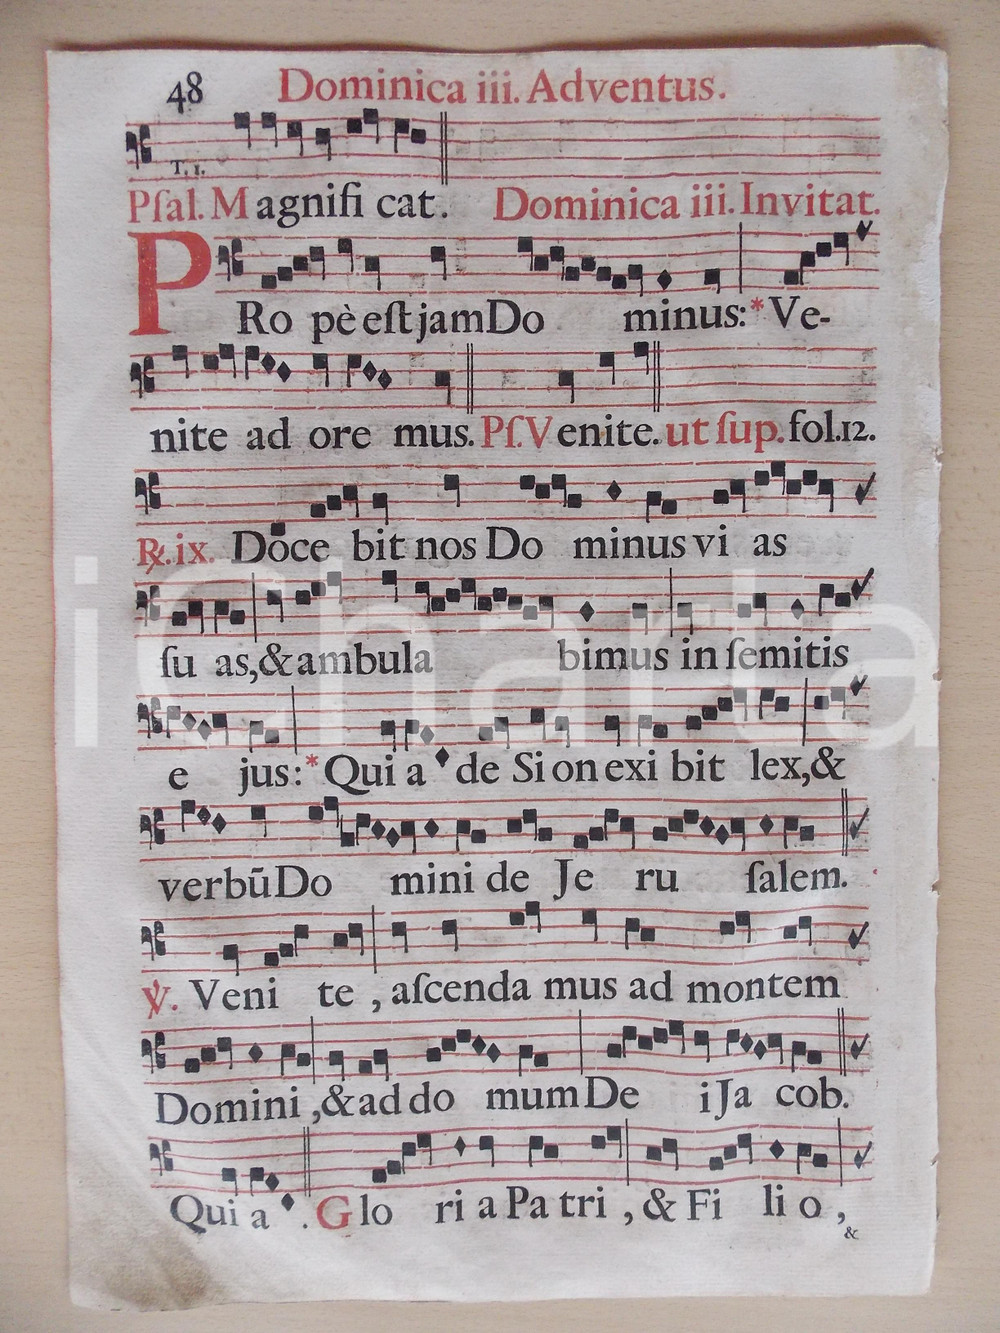 48 Dominica iii. Adventus.
T. 1.
Pſal. Magnifi cat. Dominica iii. Invitat.
PRo pè eſt jam Do minus: * Ve-
nite ad ore mus. Pſ. Venite. ut ſup. fol. 12.
℟. ix. Doce bit nos Do minus vi as
ſu as, & ambula bimus in ſemitis
e jus: * Qui a de Si on exi bit lex, &
verbū Do mini de Je ru ſalem.
℣. Veni te, aſcenda mus ad montem
Domini, & ad do mum De i Ja cob.
Qui a. Glo ri a Pa tri, & Fi li o,
&
iCharta